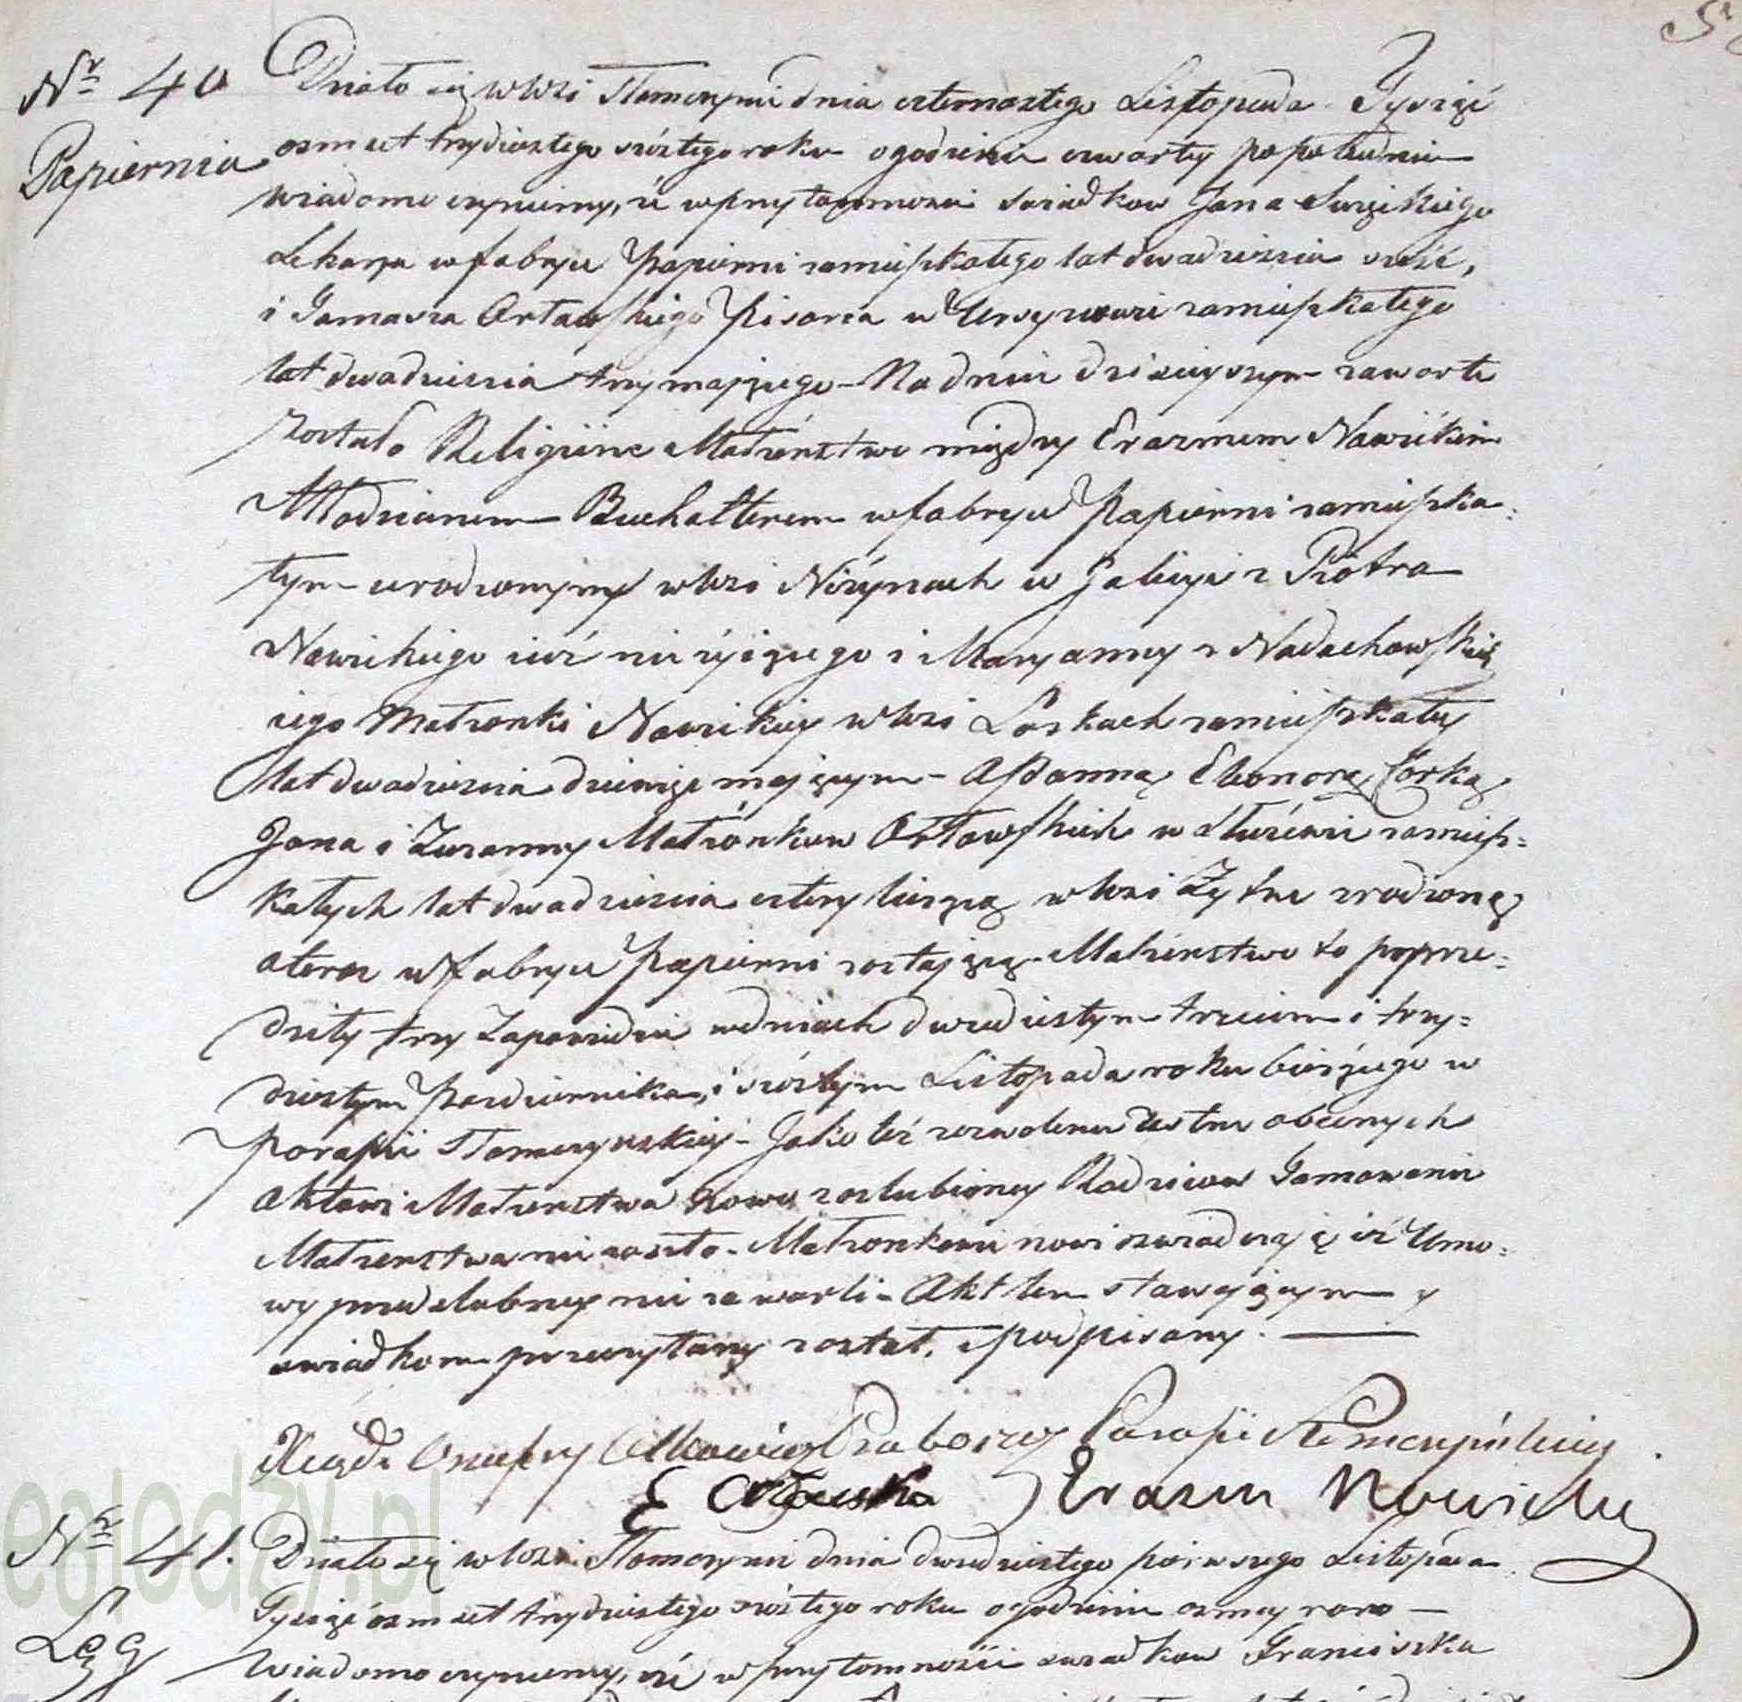 Nr 40
Papiernia
Działo się w wsi Słomczynie dnia czternastego Listopada Tysiąc
osmset trzydziestego szóstego roku o godzinie czwarty popołudniu
wiadomo czyniemy, iż w przytomności swiadkow Jana
Lekarza w fabryce Papierni zamieszkałego lat dwadzieścia sześć,
i Tomasza Orłowskiego Pisarza w Ursynowie zamieszkałego
lat dwadzieścia trzy mającego – Na dniu dzisieyszym zawarte
zostało Religijne Małżeństwo między Erazmem Nowickim
Młodzianem Buchalterem w fabryce Papierni zamieszka:
łym urodzonym w wsi Niżyńcach w Galicyi z Piotra
Nowickiego już nieżyjącego i Maryanny z Nadachowskich
iego Małżonki Nowickiey w wsi Łoskach zamieszkały
lat dwadzieścia dziewięć mającym – a Panną Eleonorą Corką
Jana i Zuzanny Małżonkow Orłowskich w Służewie zamiesz:
kałych lat dwadzieścia cztery liczącą w wsi Żytne zrodzoną
a teraz w fabryce Papierni zostającą – Małżeństwo to poprze:
dziły trzy Zapowiedzie w dniach dwudziestym trzecim i trzy:
dziestym Pazdziernika, i szóstym Listopada roku bieżącego w
Parafii Słomczyńskiey – Jako też zezwolenie ustne obecnych
aktowi Małżenstwa nowo zaslubioney Rodzicow Tamowanie
Małżenstwa nie zaszło – Małżonkowie nowi oswiadczają iż Umo:
wy przedslubney nie zawarli – Akt ten stawającym y
swiadkom przeczytany został, i podpisany.
Xiądz Onufry Proboszcz Parafii Słomczyńskiey.
E Orłowska Erazm Nowicki
Nr 41.
Łęg
Działo się w wsi Słomczynie dnia dwudziestego pierwszego Listopada
Tysiąc osmset trzydziestego szóstego roku o godzinie osmey rano –
Wiadomo czyniemy, iż w przytomności swiadkow Franciszka
ealodzy.pl